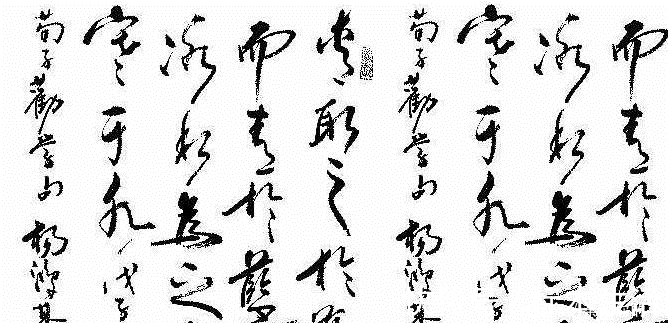 而青於藍
冰水為之
寒于水戊子
荀子勸學句楊
青取之於
而青於藍
冰水為之
寒于水戊子
荀子勸學句楊